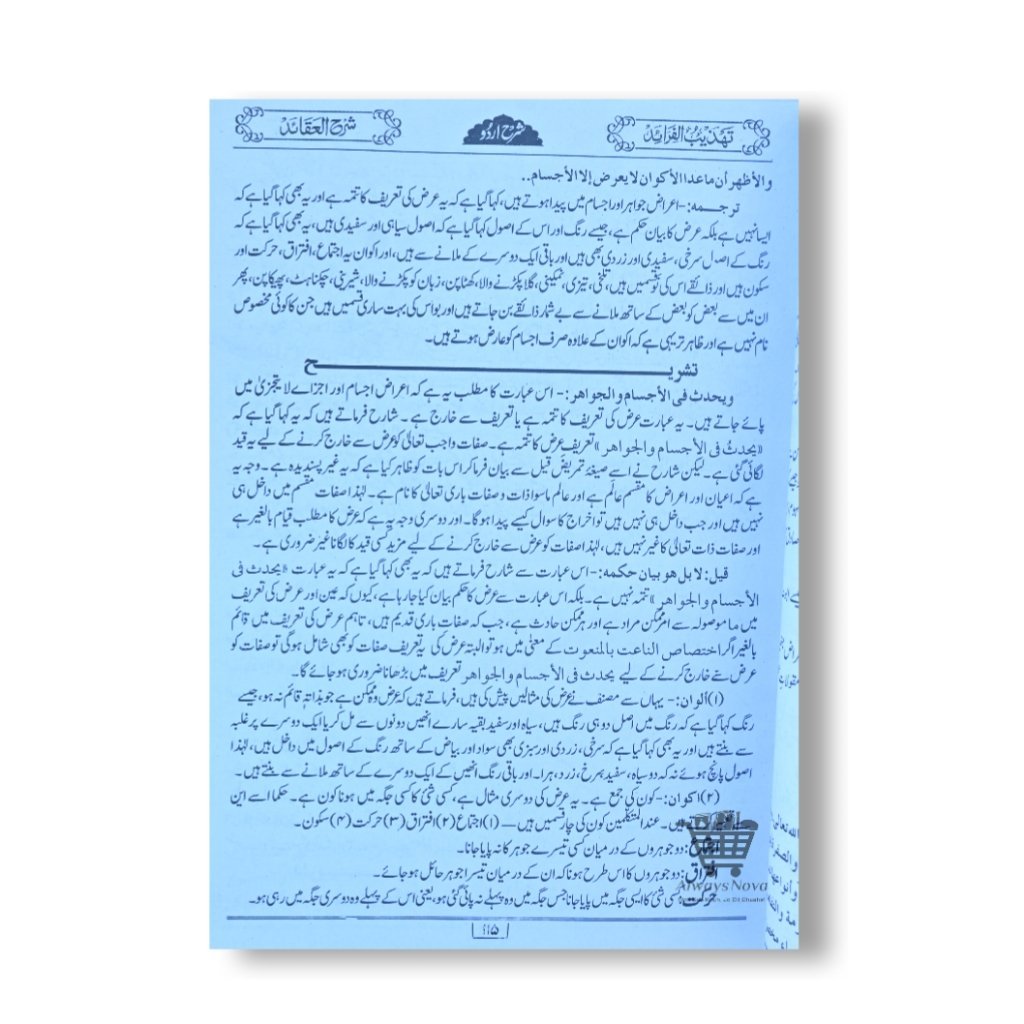 تهذيب الفرائد
شرح اردو
شرح العقائد
والأظهر أن ماعدا الأكوان لا يعرض إلا الأجسام..
ترجمہ:- اعراض جواہر اور اجسام میں پیدا ہوتے ہیں، کہا گیا ہے کہ یہ عرض کی تعریف کا تتمہ ہے اور یہ بھی کہا گیا ہے کہ
ایسا نہیں ہے بلکہ عرض کا بیان حکم ہے، جیسے رنگ اور اس کے اصول کہا گیا ہے کہ اصول سیاہی اور سفیدی ہیں، یہ بھی کہا گیا ہے کہ
رنگ کے اصول سرخی، سفیدی اور زردی بھی ہیں اور باقی ایک دوسرے کے ملانے سے ہیں، اور اکوان یہ اجتماع، افتراق، حرکت اور
سکون ہیں اور ذائقے اس کی نو قسمیں ہیں، تلخی، تیزی، نمکینی، گلا پکڑنے والا، کھٹا پن، زبان کو پکڑنے والا، شیرینی، چکناہٹ، پھیکا پن، پھر
ان میں سے بعض کو بعض کے ساتھ ملانے سے بے شمار ذائقے بن جاتے ہیں اور بو اس کی بہت ساری قسمیں ہیں جن کا کوئی مخصوص
نام نہیں ہے اور ظاہر تر یہی ہے کہ اکوان کے علاوہ صرف اجسام کو عارض ہوتے ہیں۔
تشریح
ويحدث فى الأجسام والجواهر:- اس عبارت کا مطلب یہ ہے کہ اعراض اجسام اور اجزاے لا یتجزیٰ میں
پائے جاتے ہیں۔ یہ عبارت عرض کی تعریف کا تتمہ ہے یا تعریف سے خارج ہے۔ شارح فرماتے ہیں کہ یہ کہا گیا ہے کہ
«يحدثُ فى الأجسام والجواهر» تعریف عرض کا تتمہ ہے۔ صفات واجب تعالیٰ کو عرض سے خارج کرنے کے لیے یہ قید
لگائی گئی ہے۔ لیکن شارح نے اسے صیغۂ تمریض قیل سے بیان فرما کر اس بات کو ظاہر کیا ہے کہ یہ غیر پسندیدہ ہے۔ وجہ یہ
ہے کہ اعیان اور اعراض کا مقسم عالَم ہے اور عالم ماسوا ذات و صفات باری تعالیٰ کا نام ہے۔ لہٰذا صفات مقسم میں داخل ہی
نہیں ہیں اور جب داخل ہی نہیں ہیں تو اخراج کا سوال کیسے پیدا ہوگا۔ اور دوسری وجہ یہ ہے کہ عرض کا مطلب قیام بالغیر ہے
اور صفات ذات تعالیٰ کا غیر نہیں ہیں، لہٰذا صفات کو عرض سے خارج کرنے کے لیے مزید کسی قید کا لگانا غیر ضروری ہے۔
قيل: لا بل هو بيان حكمه:- اس عبارت سے شارح فرماتے ہیں کہ یہ بھی کہا گیا ہے کہ یہ عبارت «يحدث فى
الأجسام والجواهر» تتمہ نہیں ہے۔ بلکہ اس عبارت سے عرض کا حکم بیان کیا جا رہا ہے، کیوں کہ عین اور عرض کی تعریف
میں ما موصولہ سے امر ممکن مراد ہے اور ہر ممکن حادث ہے، جب کہ صفات باری قدیم ہیں، تاہم عرض کی تعریف میں قائم
بالغیر اگر اختصاص الناعت بالمنعوت کے معنیٰ میں ہو تو البتہ عرض کی یہ تعریف صفات کو بھی شامل ہوگی تو صفات کو
عرض سے خارج کرنے کے لیے يحدث فى الأجسام والجواهر تعریف میں بڑھانا ضروری ہو جائے گا۔
(۱) الوان:- یہاں سے مصنف نے عرض کی مثالیں پیش کی ہیں، فرماتے ہیں کہ عرض وہ ممکن ہے جو بذاتہٖ قائم نہ ہو، جیسے
رنگ کہا گیا ہے کہ رنگ میں اصل دو ہی رنگ ہیں، سیاہ اور سفید بقیہ سارے انھیں دونوں سے مل کر یا ایک دوسرے پر غلبہ
سے بنتے ہیں اور یہ بھی کہا گیا ہے کہ سرخی، زردی اور سبزی بھی سواد اور بیاض کے ساتھ رنگ کے اصول میں داخل ہیں، لہٰذا
اصول پانچ ہوئے نہ کہ دو سیاہ، سفید، سرخ، زرد، ہرا۔ اور باقی رنگ انھیں کے ایک دوسرے کے ساتھ ملانے سے بنتے ہیں۔
(۲) اکوان:- کون کی جمع ہے۔ یہ عرض کی دوسری مثال ہے، کسی شئ کا کسی جگہ میں ہونا کون ہے۔ حکما اسے این
ہیں۔ عند المتکلمین کون کی چار قسمیں ہیں — (۱) اجتماع (۲) افتراق (۳) حرکت (۴) سکون۔
اجتماع: دو جوہروں کے درمیان کسی تیسرے جوہر کا نہ پایا جانا۔
افتراق: دو جوہروں کا اس طرح ہونا کہ ان کے درمیان تیسرا جوہر حائل ہو جائے۔
حرکت: کسی شئ کا ایسی جگہ میں پایا جانا جس جگہ میں وہ پہلے نہ پائی گئی ہو، یعنی اس کے پہلے وہ دوسری جگہ میں رہی ہو۔
AlwaysNova
۱۱۵